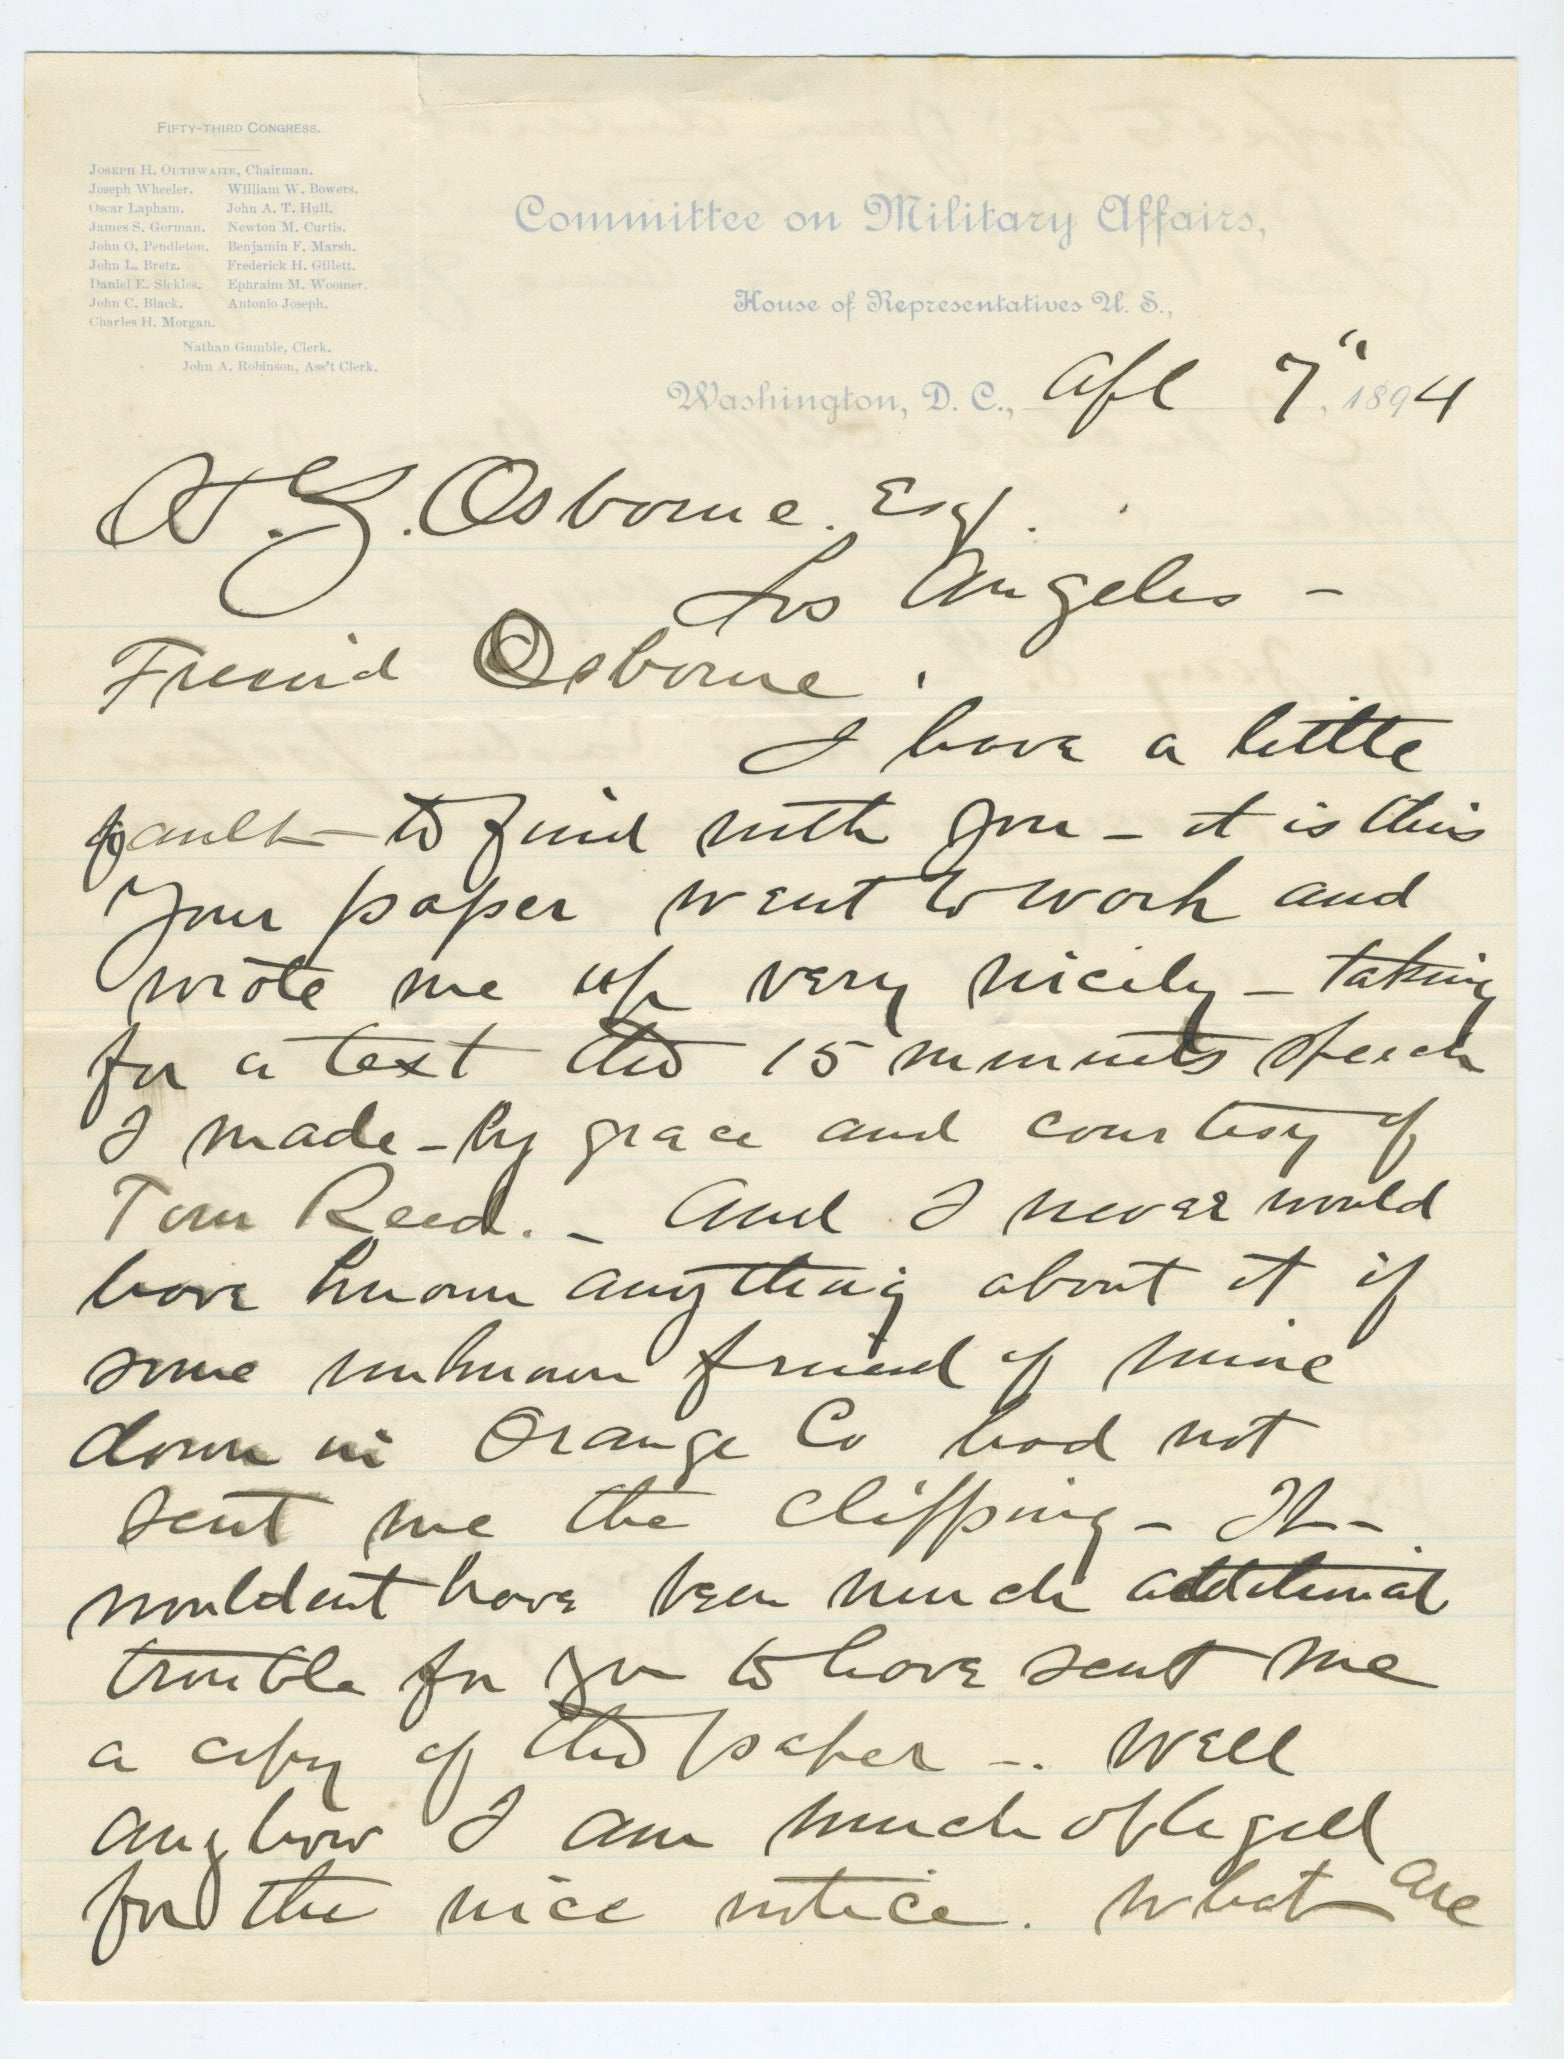 FIFTY-THIRD CONGRESS.
JOSEPH H. OUTHWAITE, Chairman.
Joseph Wheeler. William W. Bowers.
Oscar Lapham. John A. T. Hull.
James S. Gorman. Newton M. Curtis.
John O. Pendleton. Benjamin F. Marsh.
John L. Bretz. Frederick H. Gillett.
Daniel E. Sickles. Ephraim M. Woomer.
John C. Black. Antonio Joseph.
Charles H. Morgan.
Nathan Gumble, Clerk.
John A. Robinson, Ass't Clerk.
Committee on Military Affairs,
House of Representatives U. S.,
Washington, D. C., Apl 7", 1894
H. Z. Osborne. Esq.
Los Angeles -
Freind Osborne.
I have a little
fault to find with you - it is this
Your paper went to work and
wrote me up very nicely - taking
for a text the 15 minuets speech
I made - by grace and courtesy of
Tom Reed. - And I never would
have known anything about it if
some unknown friend of mine
down in Orange Co had not
sent me the clipping - It -
wouldent have been much additional
trouble for you to have sent me
a copy of the paper -. Well
anyhow I am much obleged
for the nice notice. What are